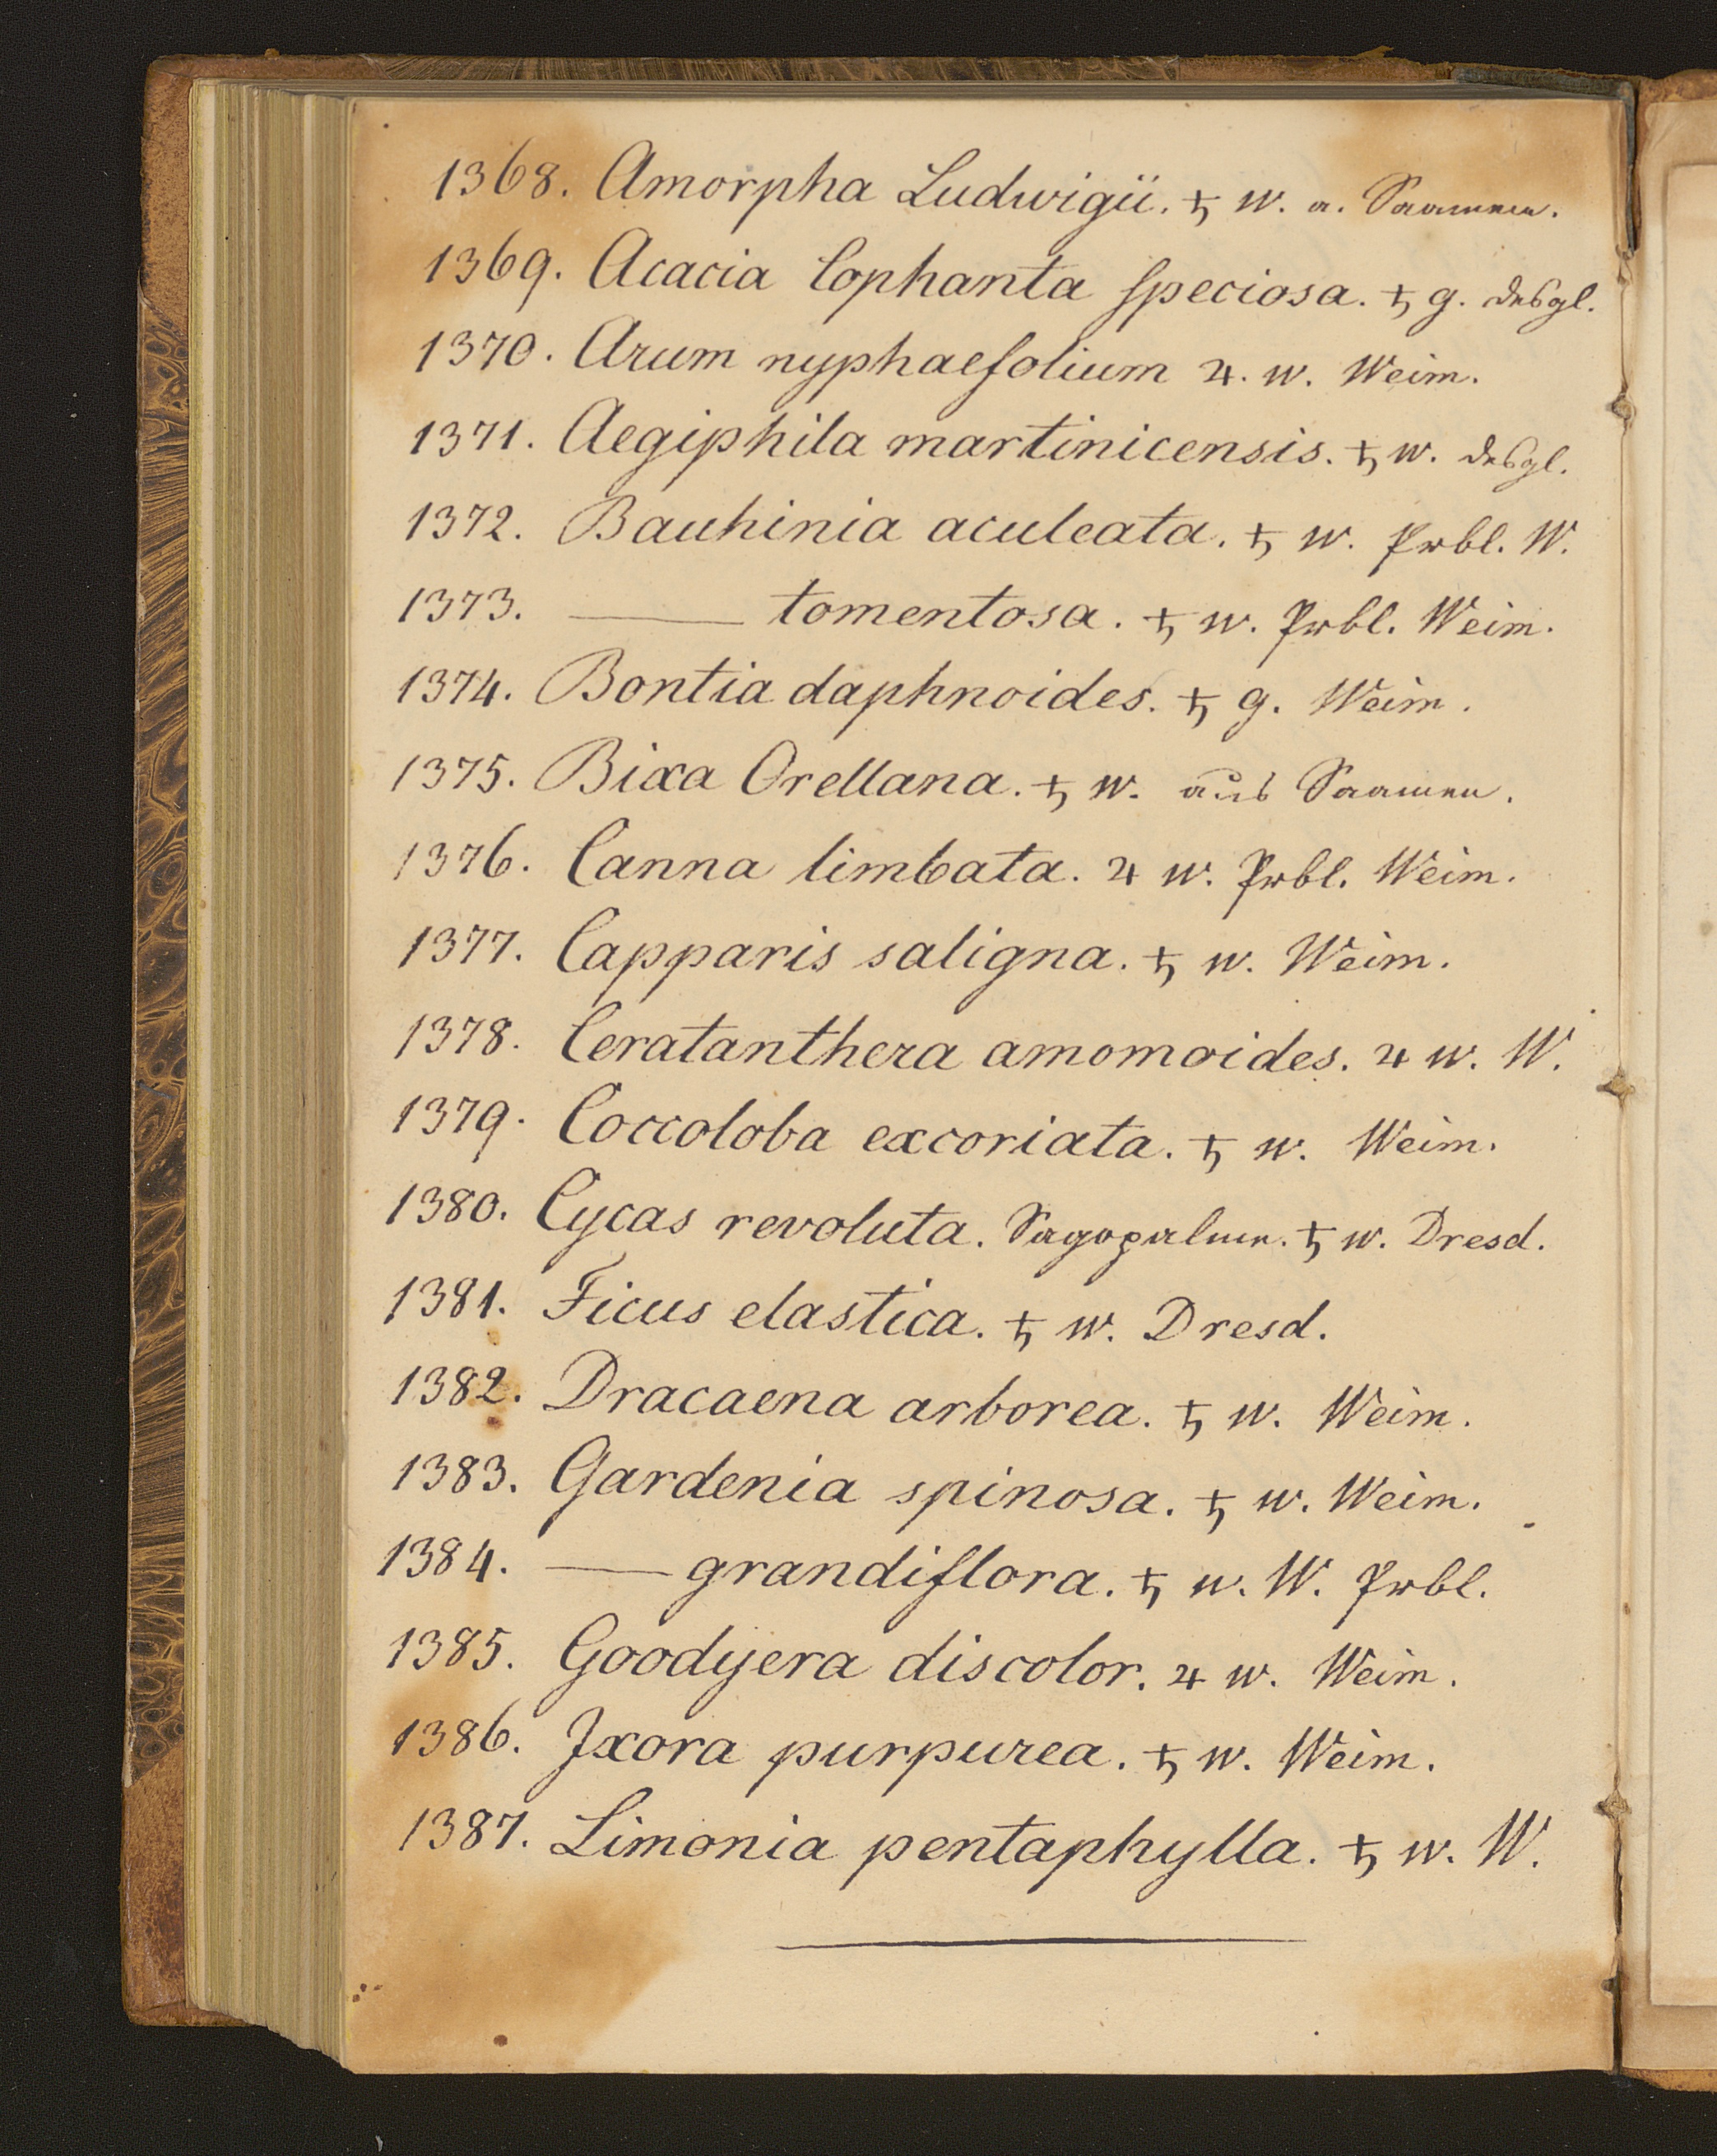 1368. Amorpha Ludwigii. ♄ w. a. Saamen.
1369. Acacia Cophanta speciosa. ♄ g. desgl.
1370. Arum nyphaefolium ♃. w. Weim.
1371. Aegiphila martinicensis. ♄ w. desgl.
1372. Bauhinia aculeata. ♄ w. Prbl. W.
1373. —— tomentosa. ♄ w. Prbl. Weim.
1374. Bontia daphnoides. ♄ g. Weim.
1375. Bixa Orellana. ♄ w. aus Saamen.
1376. Canna limbata. ♃ w. Prbl. Weim.
1377. Capparis saligna. ♄ w. Weim.
1378. Ceratanthera amomoides. ♃ w. W.
1379. Coccoloba excoriata. ♄ w. Weim.
1380. Cycas revoluta. Sagopalme. ♄ w. Dresd.
1381. Ficus elastica. ♄ w. Dresd.
1382. Dracaena arborea. ♄ w. Weim.
1383. Gardenia spinosa. ♄ w. Weim.
1384. —— grandiflora. ♄ w. W. Prbl.
1385. Goodyera discolor. ♃ w. Weim.
1386. Ixora purpurea. ♄ w. Weim.
1387. Limonia pentaphylla. ♄ w. W.